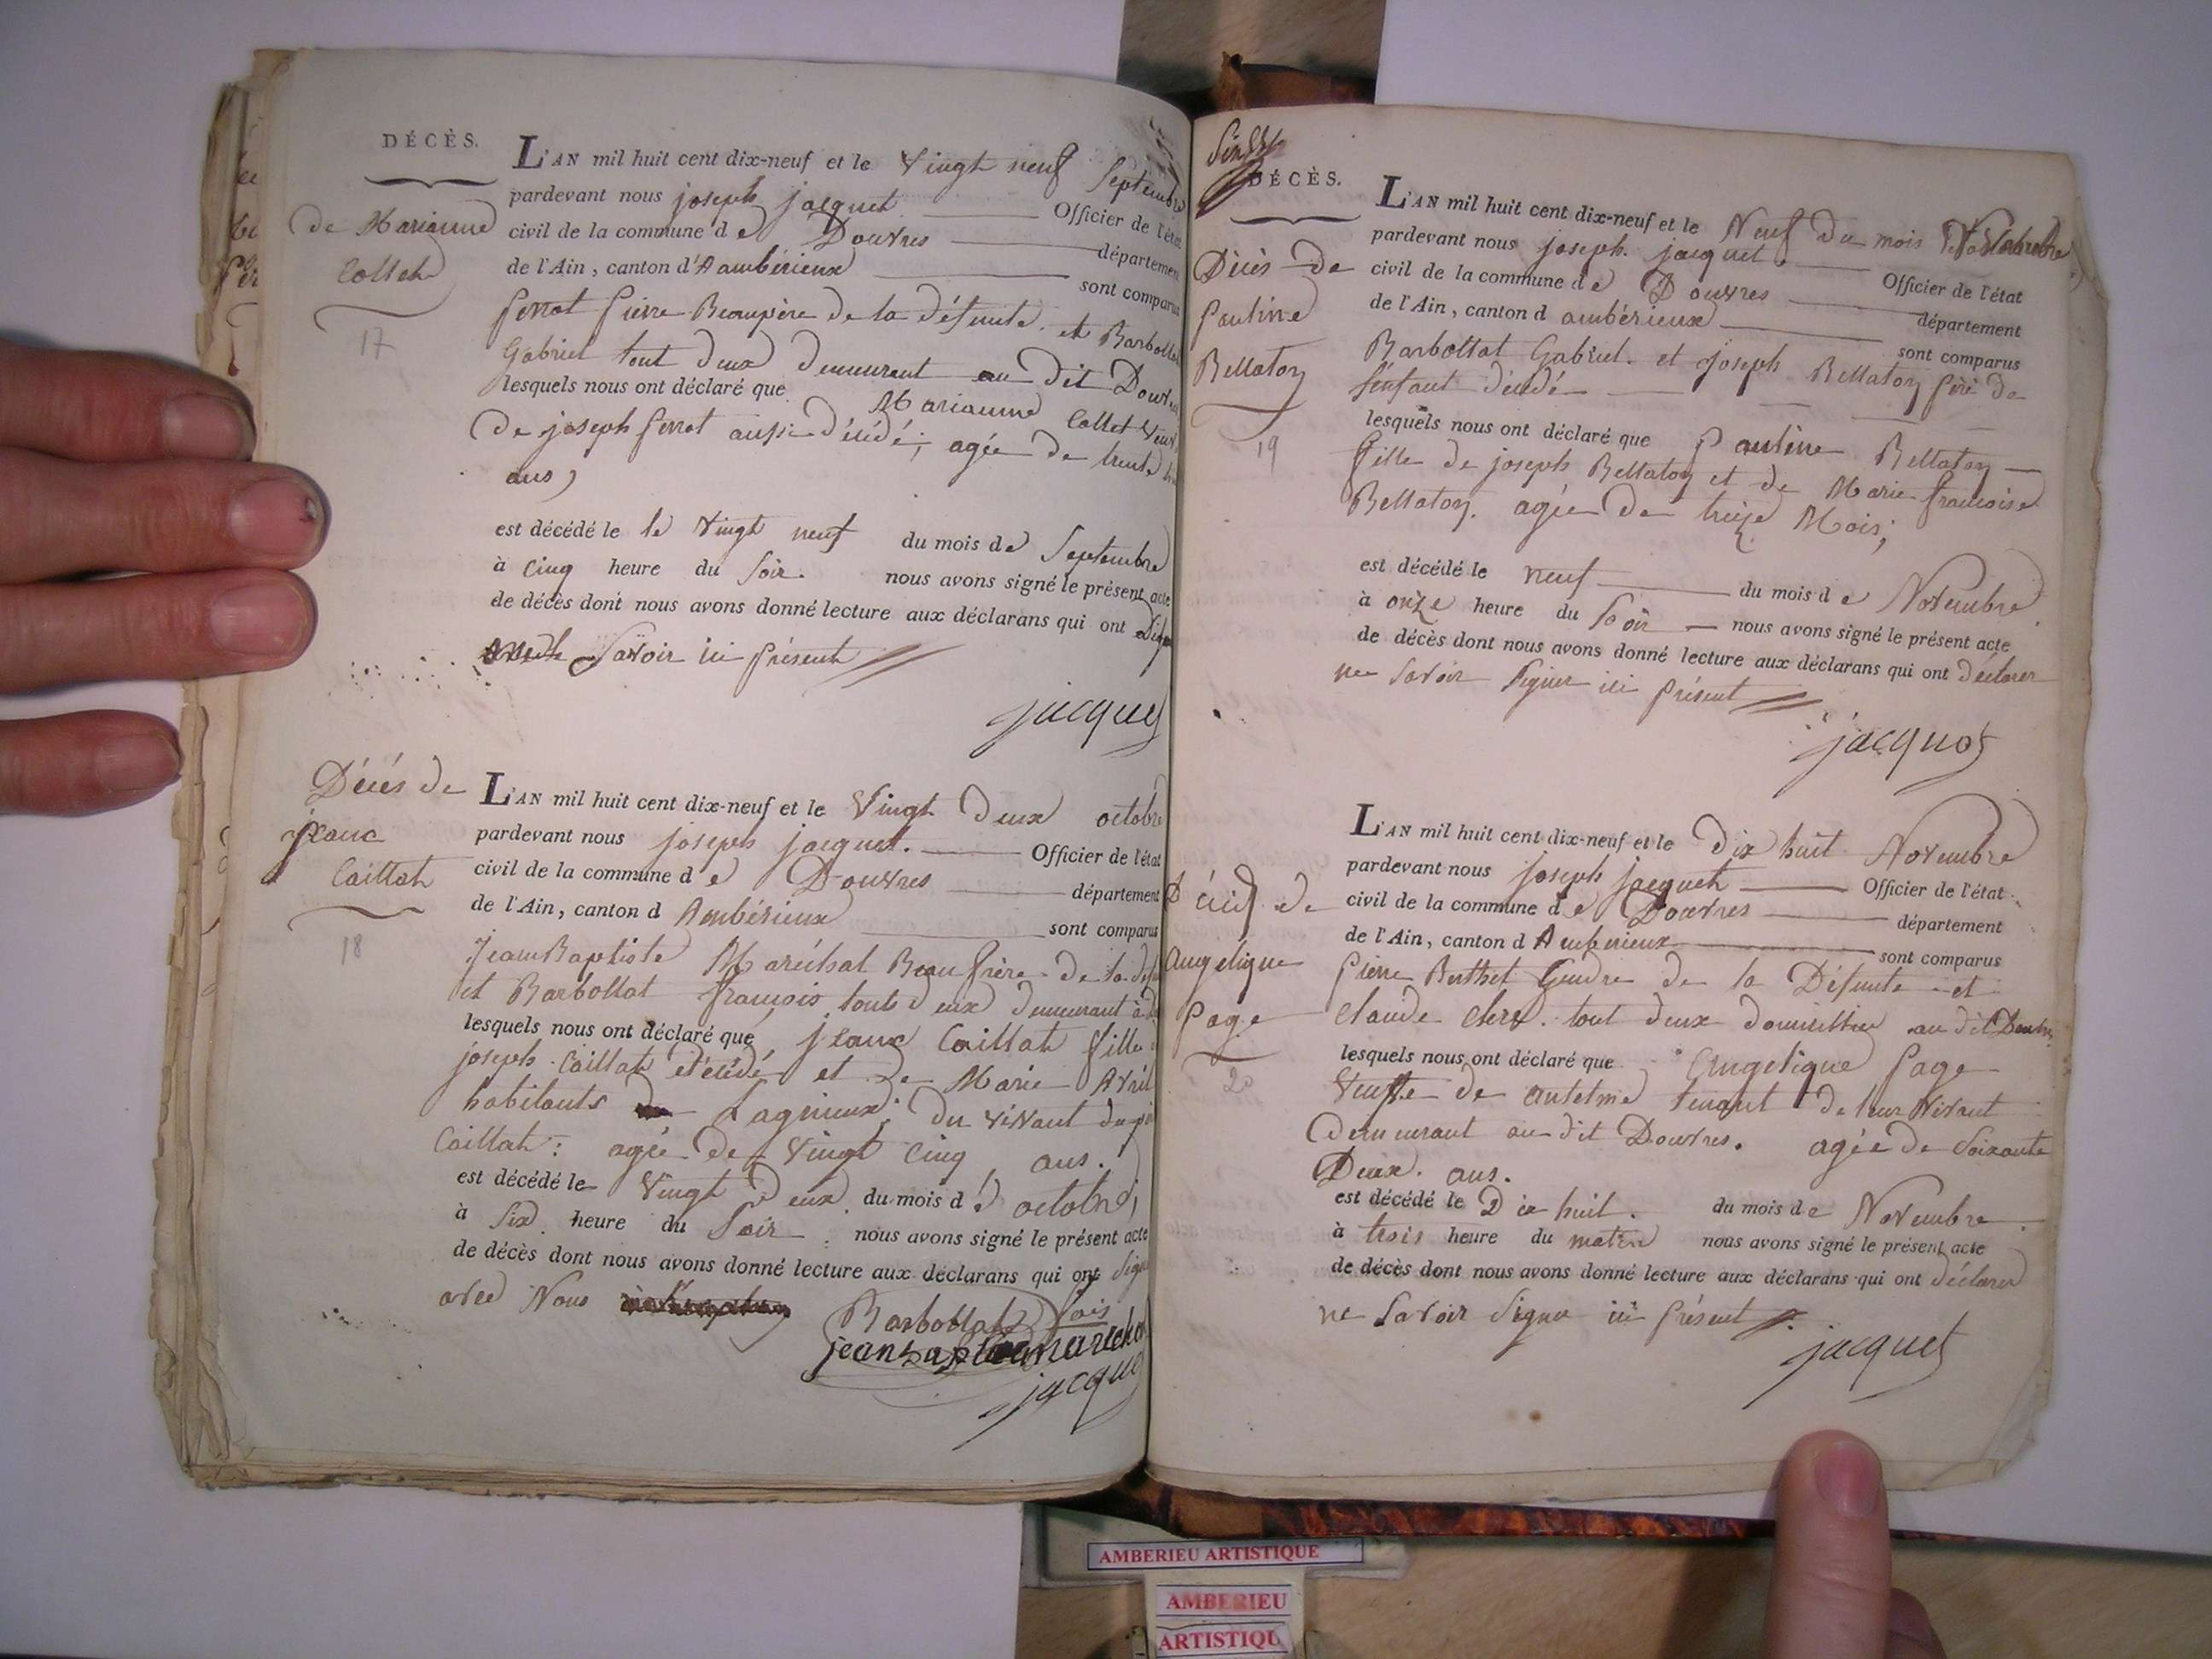 DÉCÈS.
de Marianne
Collet
17
L'AN mil huit cent dix-neuf et le Vingt neuf Septembre
pardevant nous joseph jacquet Officier de l'état
civil de la commune de Douvres département
de l'Ain, canton d'Aambérieux sont comparus
Perrot Pierre Beaupère de la défunte et Barbollat
Gabriel tout deux demeurant au dit Douvres
lesquels nous ont déclaré que Marianne Collet Veuve
de joseph Perrot aussi décédé, agée de trente
ans,
est décédé le le Vingt neuf du mois de Septembre
à Cinq heure du Soir. nous avons signé le présent acte
de décès dont nous avons donné lecture aux déclarans qui ont
Savoir ici présent
jacquet
Décés de
jeane
Caillat
18
L'AN mil huit cent dix-neuf et le Vingt Deux octobre
pardevant nous joseph jacquet. Officier de l'état
civil de la commune de Douvres département
de l'Ain, canton d Ambérieux sont comparus
Jean Baptiste Maréchal Beaufrère de la
et Barbollat françois tout deux demeurant à
lesquels nous ont déclaré que jeane Caillat fille
joseph Caillat décédé et de Marie Avril
habitants Lagnieux du vivant du
Caillat: agée de Vingt Cinq ans.
est décédé le Vingt Deux du mois d octobre
à Six heure du Soir nous avons signé le présent acte
de décès dont nous avons donné lecture aux déclarans qui ont Signé
avec Nous
Barbollat fois
jean baptiste marechal
jacquet
DÉCÈS.
Décès de
Pauline
Bellaton
19
L'AN mil huit cent dix-neuf et le Neuf du mois Novembre
pardevant nous joseph jacquet Officier de l'état
civil de la commune de Douvres département
de l'Ain, canton d ambérieux sont comparus
Barbollat Gabriel. et joseph Bellaton père de
l'enfant décédé
lesquels nous ont déclaré que Pauline Bellaton
fille de joseph Bellaton et de Marie françoise
Bellaton. agée de treize Mois;
est décédé le neuf du mois de Novembre
à onze heure du Soir nous avons signé le présent acte
de décès dont nous avons donné lecture aux déclarans qui ont déclarer
ne Savoir Signer ici présent
jacquet
Décès de
Angélique
Page
20
L'AN mil huit cent dix-neuf et le Dix huit Novembre
pardevant nous joseph jacquet Officier de l'état
civil de la commune de Douvres département
de l'Ain, canton d Amberieux sont comparus
Pierre Berthet Gendre de la Défunte et
claude clerc. tout deux domicillier au dit Douvres
lesquels nous ont déclaré que Angelique Page
Veuve de antelme Tenant de leur Vivant
Demeurant au dit Douvres. agée de Soixante
Deux. ans.
est décédé le Dix huit. du mois de Novembre
à trois heure du matin nous avons signé le présent acte
de décès dont nous avons donné lecture aux déclarans qui ont déclarer
ne Savoir Signer ici présent
jacquet
AMBERIEU ARTISTIQUE
AMBERIEU
ARTISTIQU